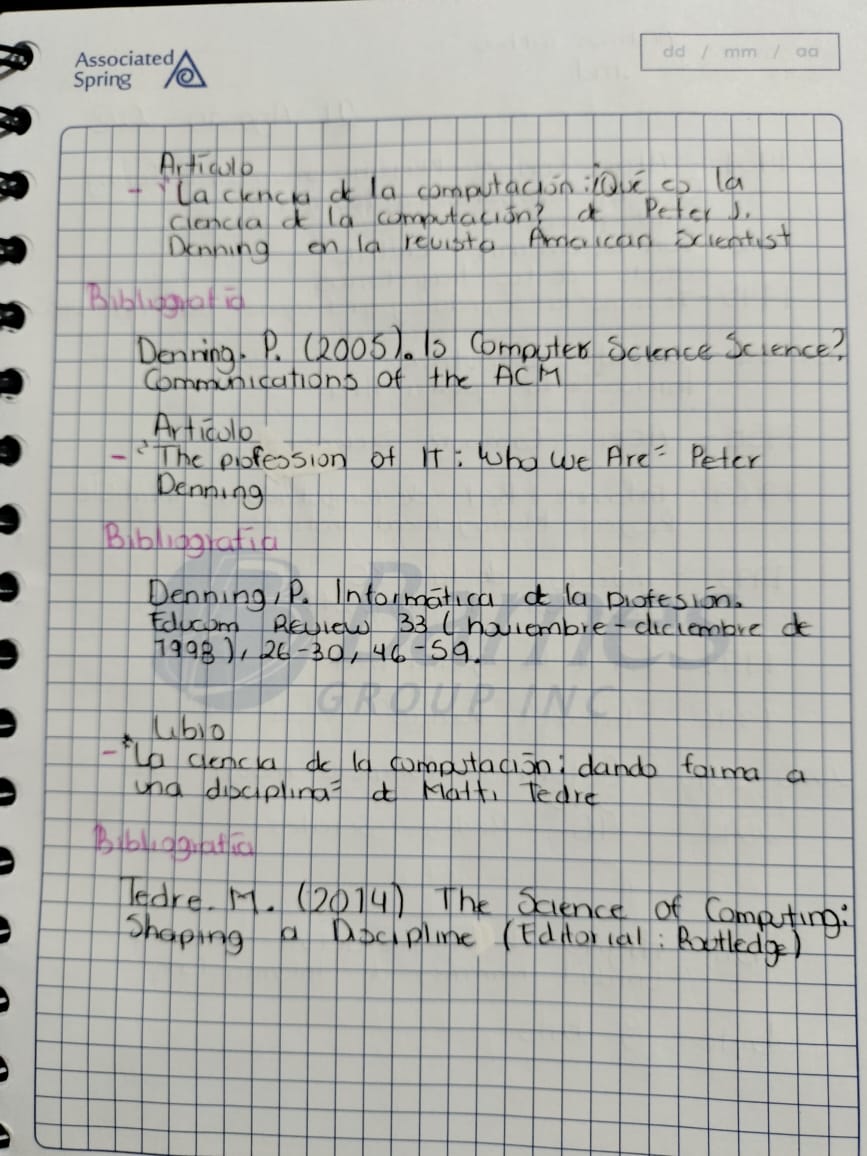 Associated
Spring
dd / mm / aa
Artículo
- "La ciencia de la computación: ¿Qué es la
ciencia de la computación? de Peter J.
Denning en la revista American Scientist
Bibliografía
Denning. P. (2005). Is Computer Science Science?
Communications of the ACM
Artículo
- "The profession of IT: Who We Are" Peter
Denning
Bibliografía
Denning, P. Informática de la profesión.
Educom Review 33 (noviembre-diciembre de
1998), 26-30, 46-59.
Barnes
GROUP INC
Libro
- "La ciencia de la computación: dando forma a
una disciplina" de Matti Tedre
Bibliografía
Tedre. M. (2014) The Science of Computing:
Shaping a Discipline (Editorial: Routledge)